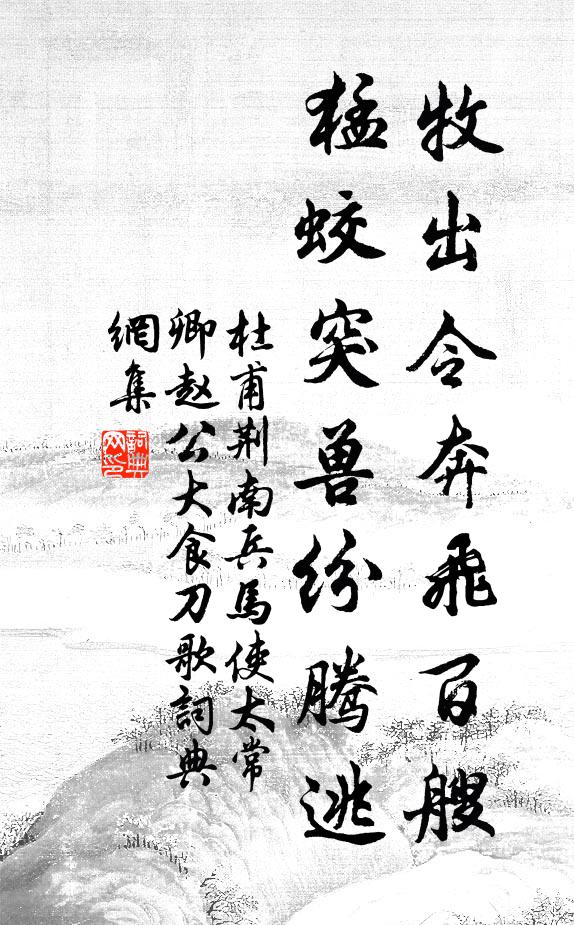 牧出令奔飛百艘
猛蛟突兽紛騰逃
杜甫荆南兵馬使太常
卿赵公大食刀歌詞典
網集